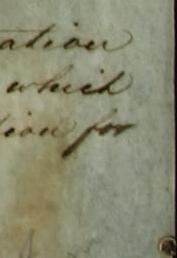 ation
which
tion for